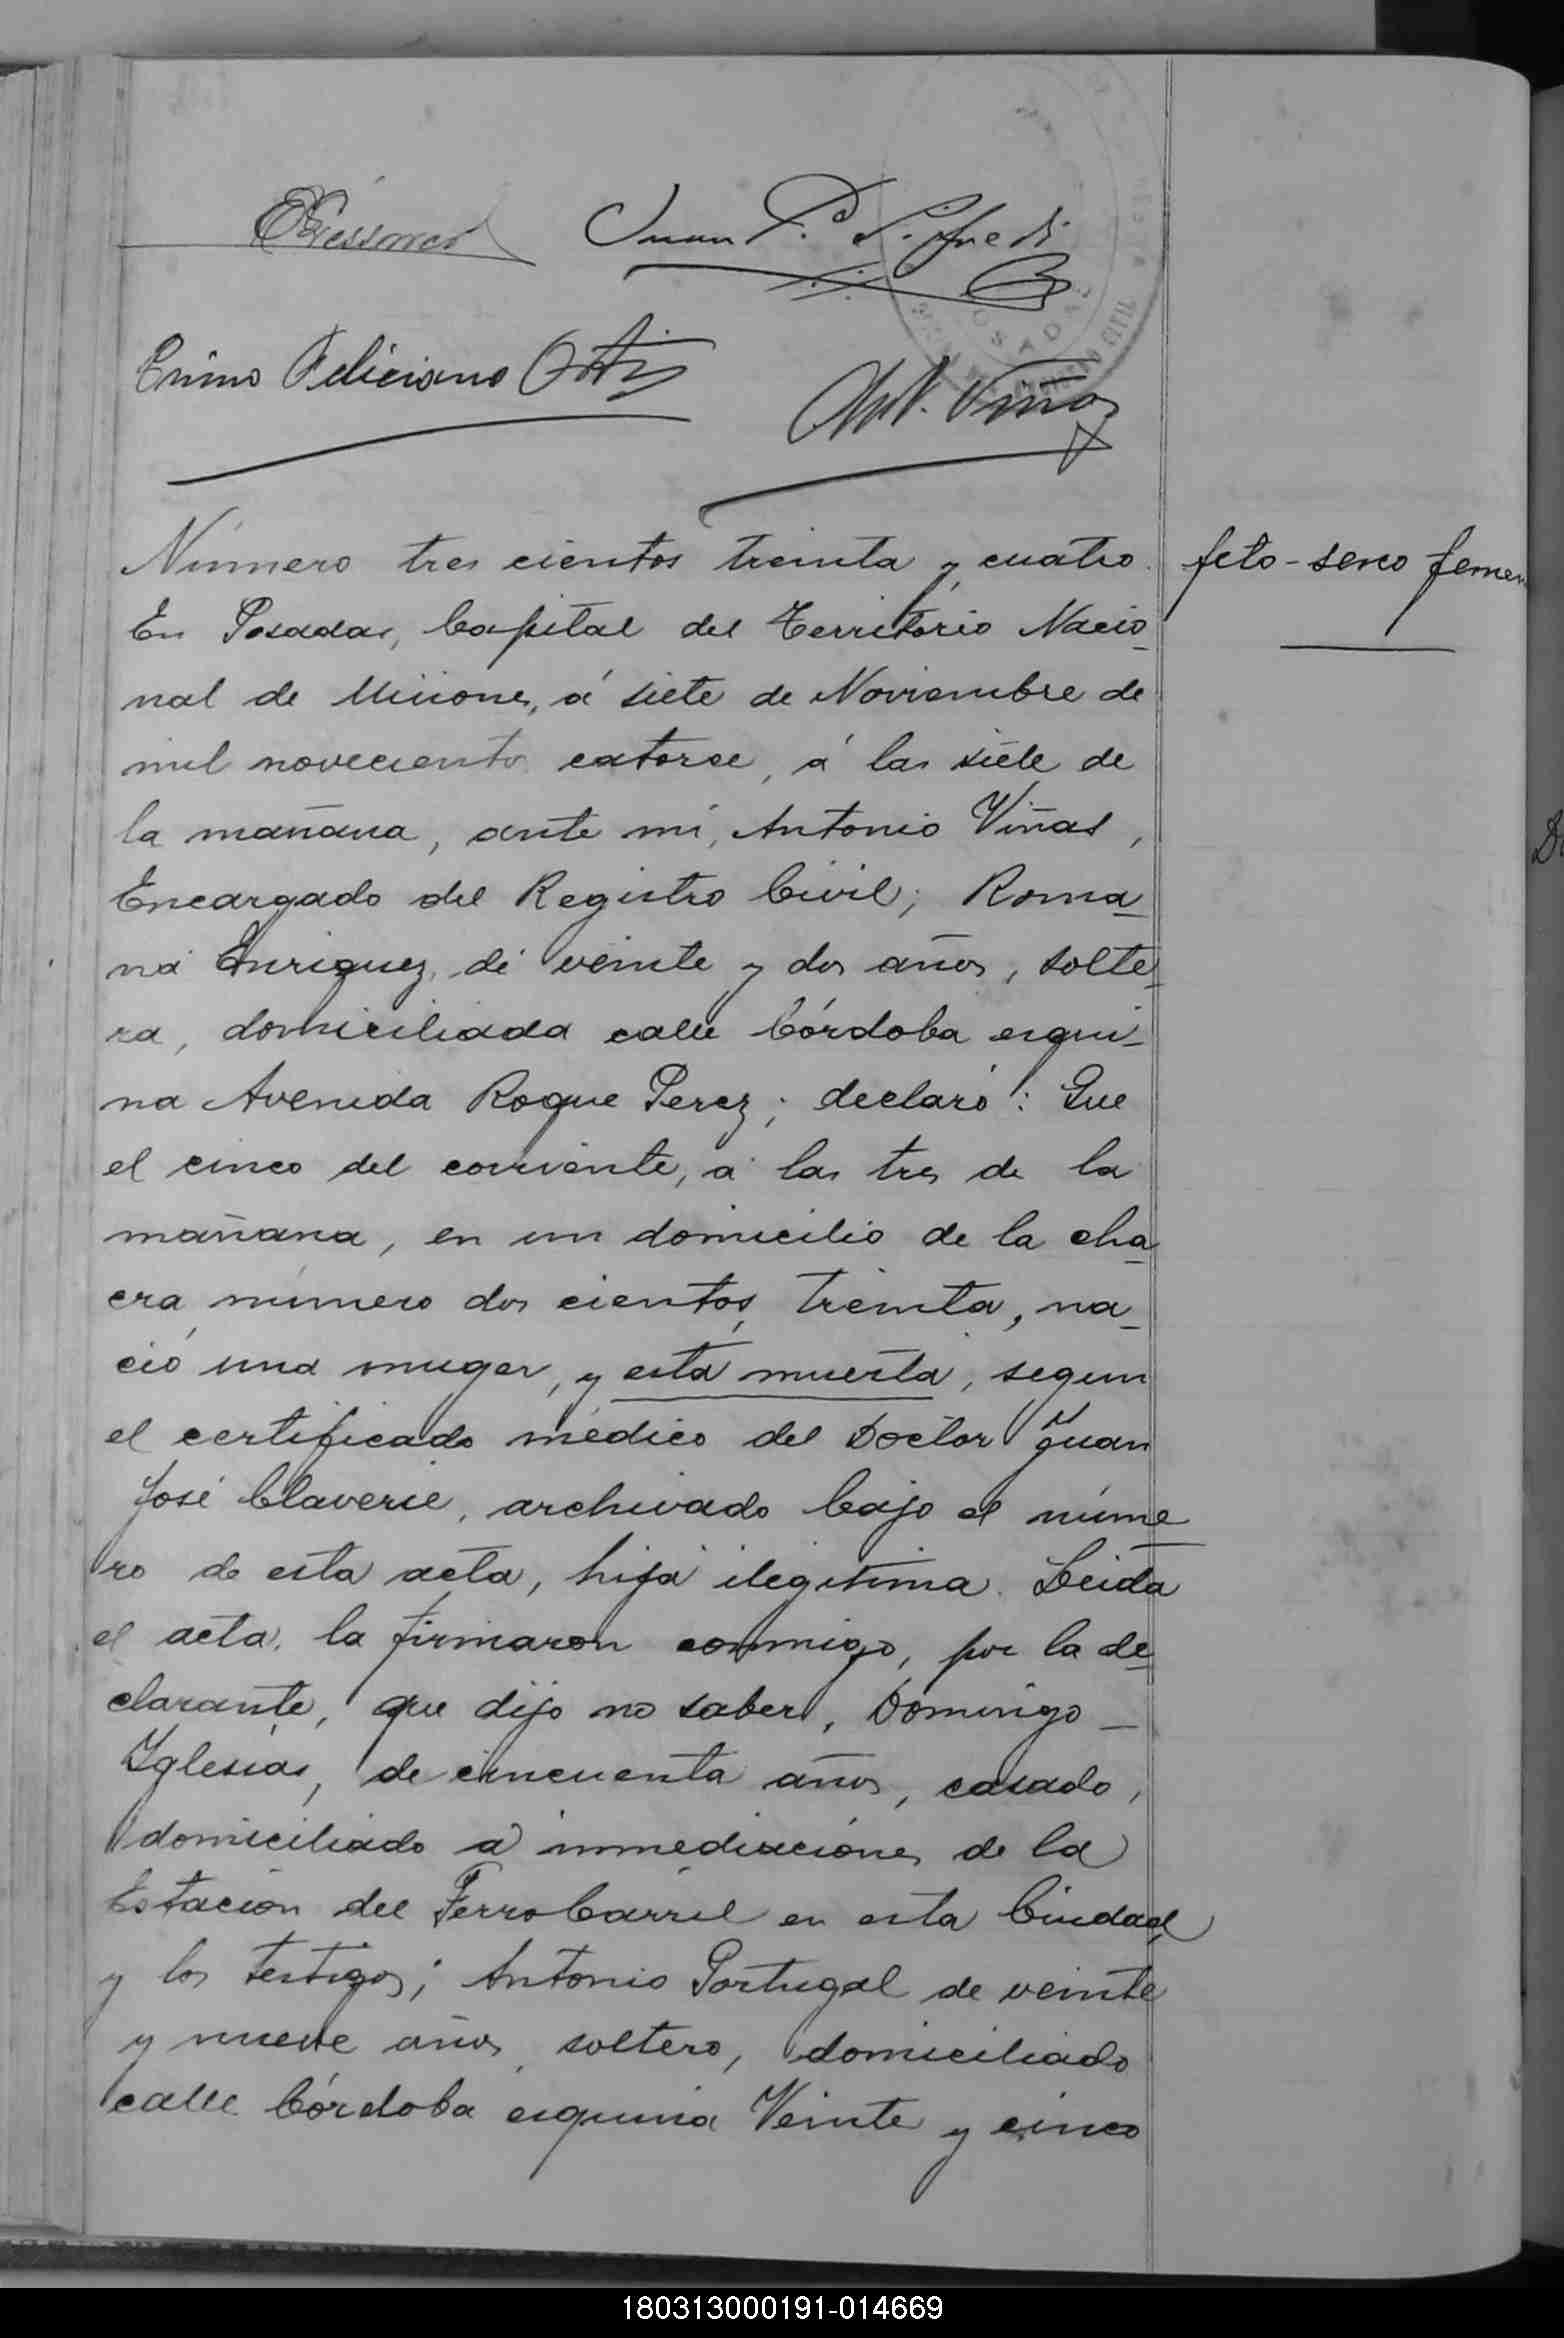 Juan P.
Primo Feliciano Ortiz
Ant. Viñas
Número tres cientos treinta y cuatro.
feto - sexo femen
En Posadas, Capital del Territorio Nacio-
nal de Misiones, á siete de Noviembre de
mil novecientos catorse, á las siete de
la mañana, ante mí, Antonio Viñas,
Encargado del Registro Civil; Roma-
na Enriquez, de veinte y dos años, solte-
ra, domiciliada calle Córdoba esqui-
na Avenida Roque Perez; declaró: Que
el cinco del corriente, á las tres de la
mañana, en un domicilio de la cha-
cra número dos cientos treinta, na-
ció una muger, y está muerta, segun
el certificado médico del Doctor Juan
José Claverie, archivado bajo el núme-
ro de esta acta, hija ilegitima. Leida
el acta, la firmaron conmigo, por la de-
clarante, que dijo no saber, Domingo -
Yglesias, de cincuenta años, casado,
domiciliado á inmediaciones de la
Estación del FerroCarril en esta Ciudad,
y los testigos; Antonio Portugal de veinte
y nueve años, soltero, domiciliado
calle Córdoba esquina Veinte y cinco
180313000191-014669